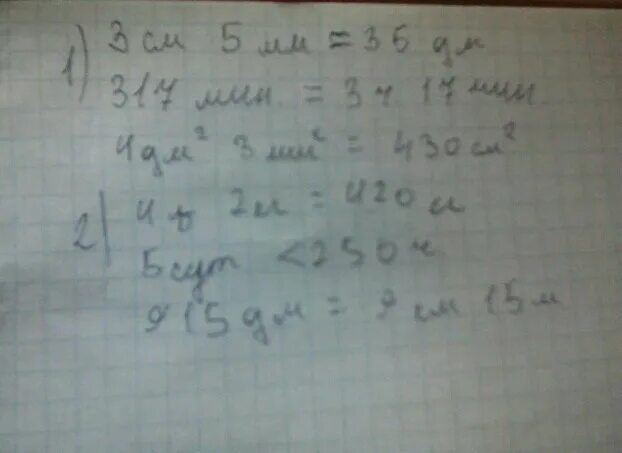 1) 3 см 5 мм = 35 дм
317 мин = 3ч 17 мин
4дм² 3мм² = 430см²
2) 4 2м = 420м
5сут <250ч
915дм = 9 см 15м